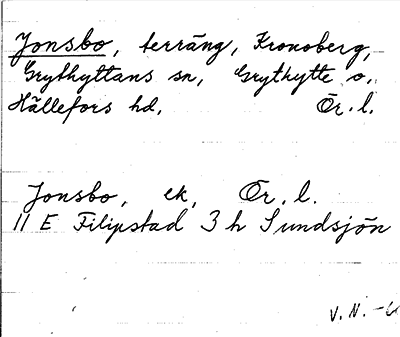 Jonsbo, terräng, Kronoberg,
Grythyttans sn, Grythytte o.
Hällefors hd. Ör. l.
Jonsbo, ek, Ör. l.
11 E Filipstad 3 h Sundsjön
V. N. -